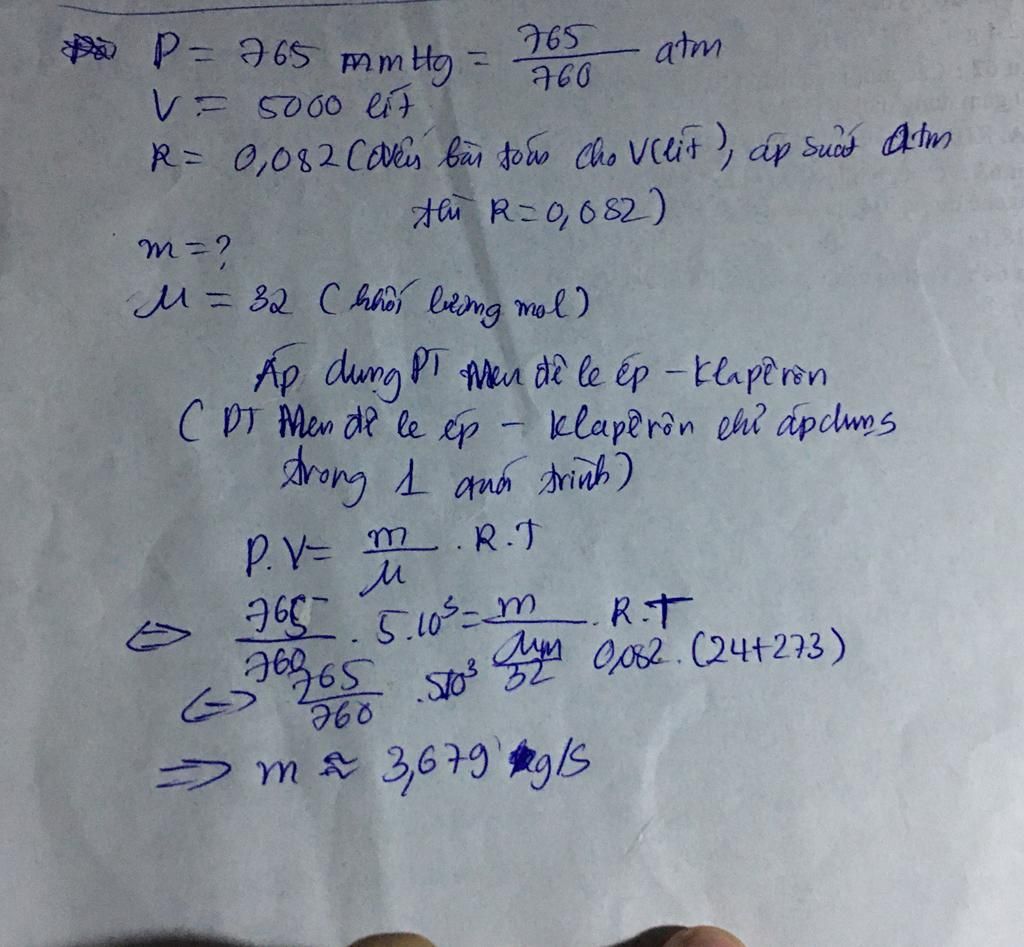 P = 765 mmHg = 765/760 atm
V = 5000 lít
R = 0,082 (nếu bài toán cho V(lít), áp suất atm
thì R = 0,082)
m = ?
μ = 32 (khối lượng mol)
Áp dụng PT Men đê le ép - Klapêrôn
(PT Men đê le ép - Klapêrôn chỉ áp dụng
trong 1 quá trình)
P.V = m/μ . R.T
⇔ 765/760 . 5.10³ = m/32 . R.T
⇔ 765/760 . 5.10³ 0,082 . (24+273)
⇒ m ≈ 3,679 kg/s